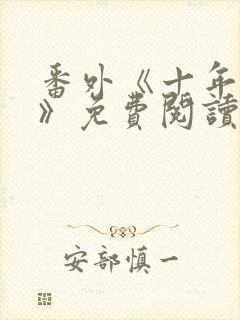 番外《十年
》免費閱讀
安部慎一